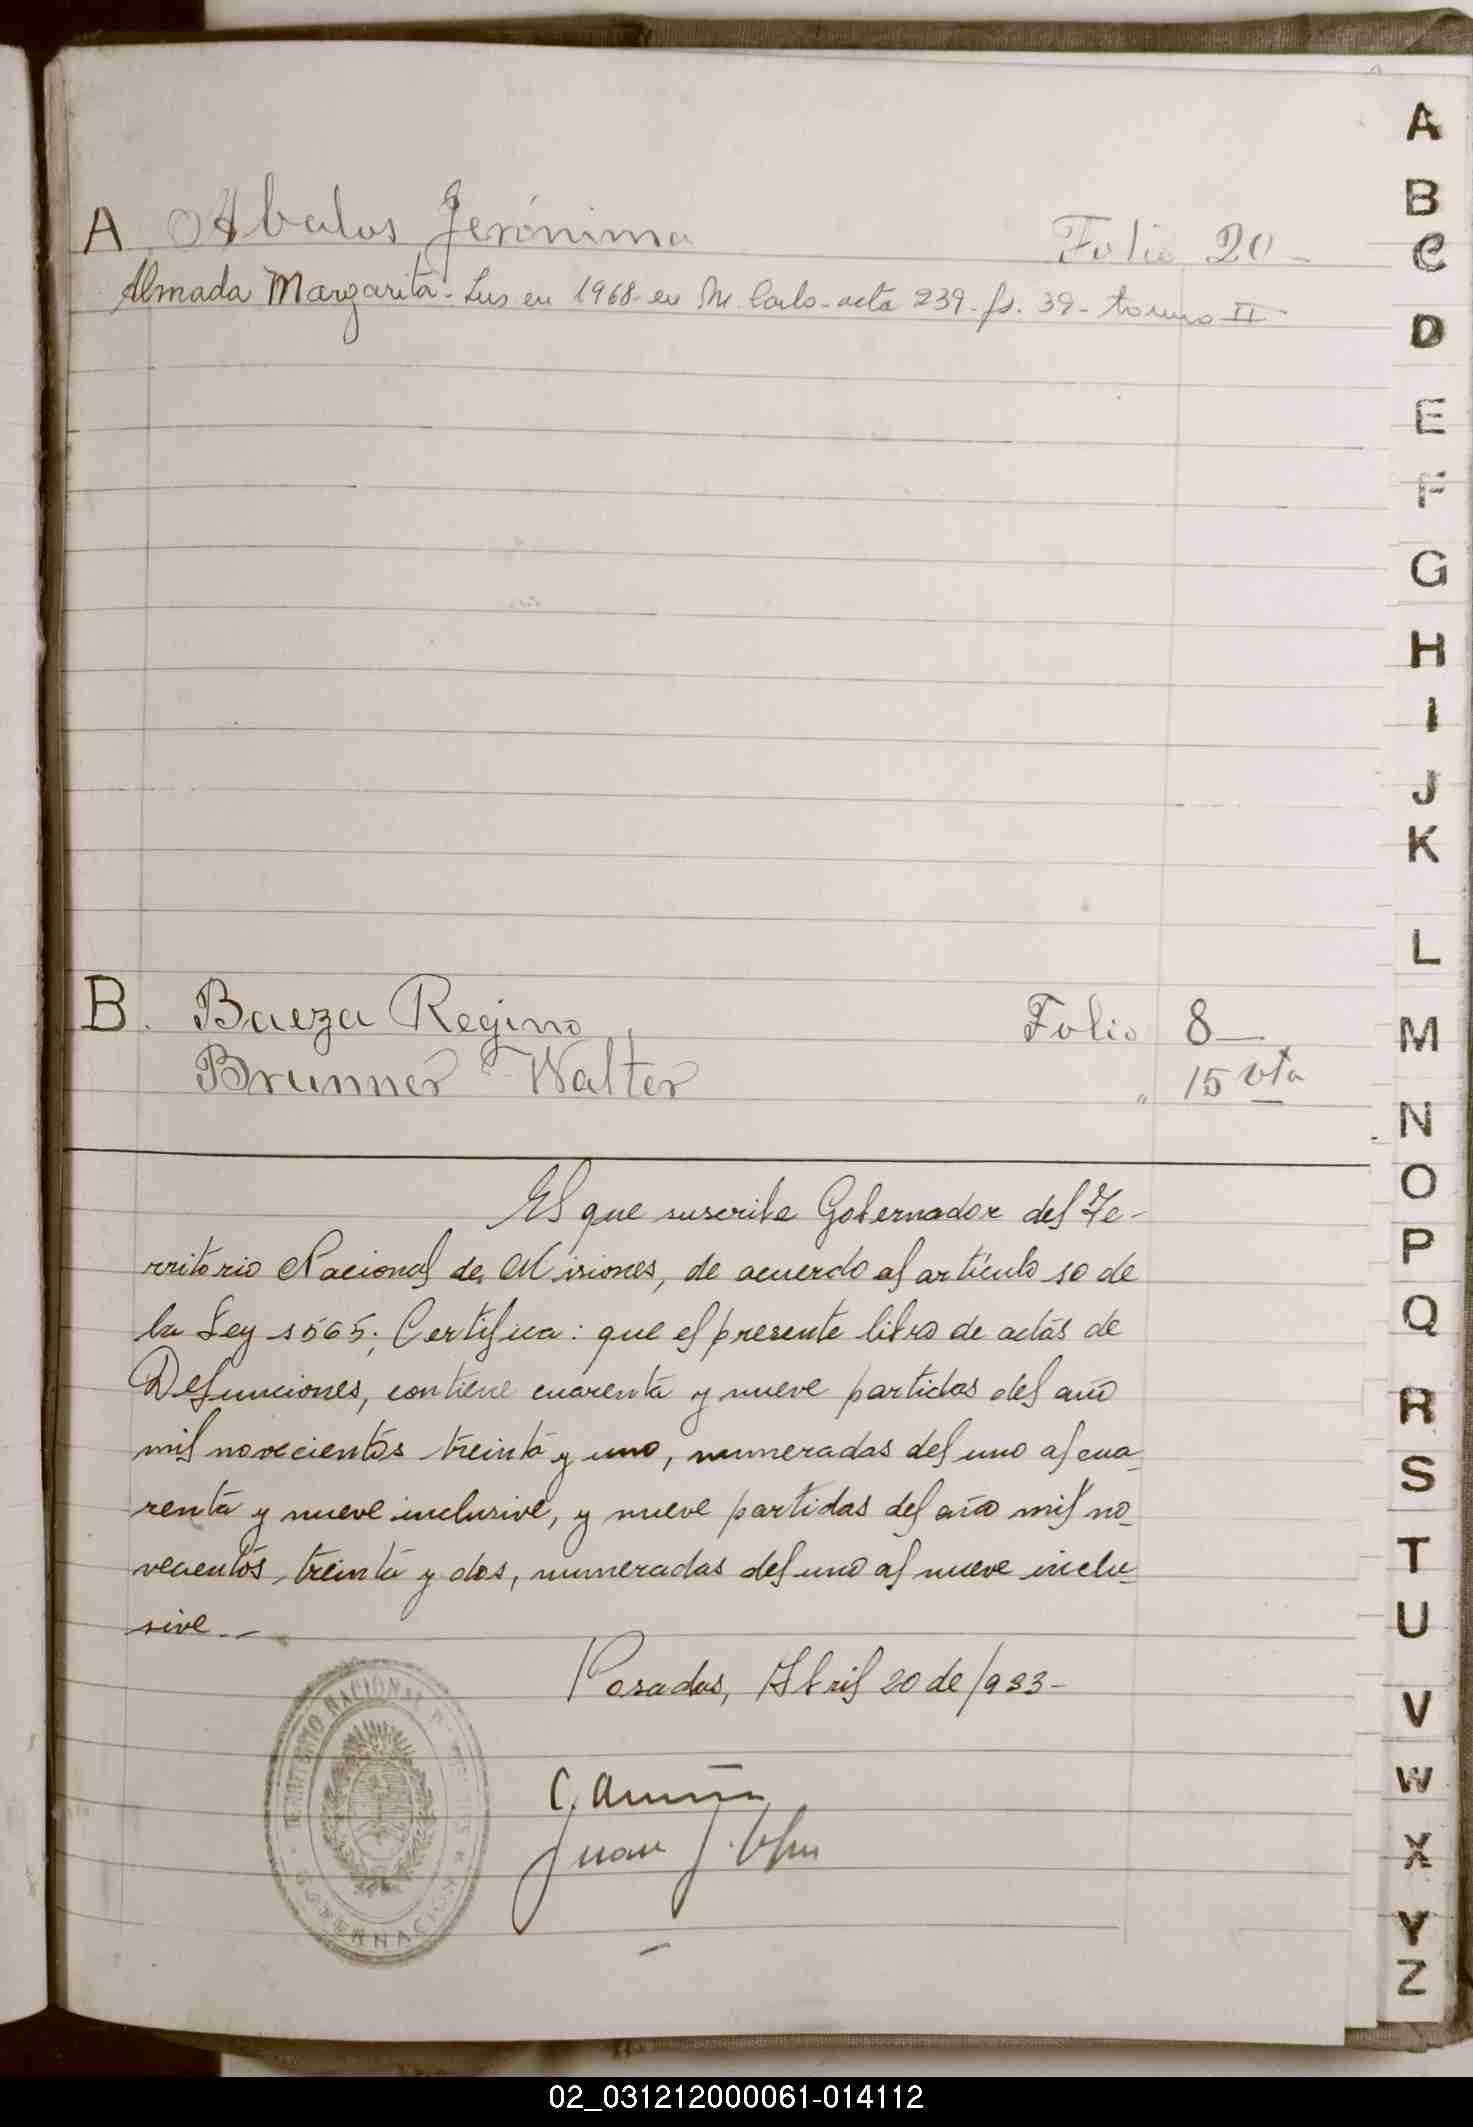 A Abalos Jerónima Folio 20 -
Almada Margarita - Ins en 1968 - en M. Carlo - acta 239 - fs. 39 - tomo II
B. Baeza Regino Folio 8 —
Brunner Walter " 15 vta
El que suscribe Gobernador del Te-
rritorio Nacional de Misiones, de acuerdo al artículo 10 de
la Ley 1565; Certifica: que el presente libro de actas de
Defunciones, contiene cuarenta y nueve partidas del año
mil novecientos treinta y uno, numeradas del uno al cua-
renta y nueve inclusive, y nueve partidas del año mil no-
vecientos treinta y dos, numeradas del uno al nueve inclu-
sive. -
Posadas, Abril 20 de 1933 -
TERRITORIO NACIONAL
GOBERNACION
Juan J.
A
B
C
D
E
F
G
H
I
J
K
L
M
N
O
P
Q
R
S
T
U
V
W
X
Y
Z
02_031212000061-014112